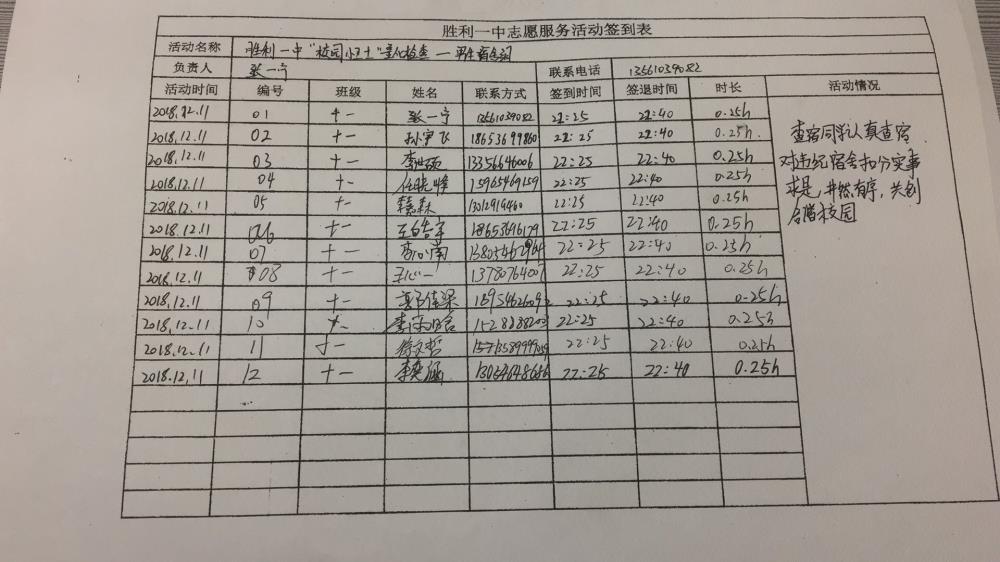 胜利一中志愿服务活动签到表
活动名称 胜利一中"校园卫士"量化检查一男生宿舍阁
负责人 张一宁 联系电话 13561039082
活动时间 编号 班级 姓名 联系方式 签到时间 签退时间 时长 活动情况
2018.12.11 01 十一 张一宁 13561039082 22:25 22:40 0.25h
2018.12.11 02 十一 孙宇飞 18653699860 22:25 22:40 0.25h
2018.12.11 03 十一 13356646006 22:25 22:40 0.25h
2018.12.11 04 十一 任晓峰 15965469159 22:25 22:40 0.25h
2018.12.11 05 十一 22:25 22:40 0.25h
2018.12.11 06 十一 18653696179 22:25 22:40 0.25h
2018.12.11 07 十一 22:25 22:40 0.25h
2018.12.11 08 十一 王心一 1378076400 22:25 22:40 0.25h
2018.12.11 09 十一 22:25 22:40 0.25h
2018.12.11 10 22:25 22:40 0.25h
2018.12.11 11 十一 徐文哲 22:25 22:40 0.25h
2018.12.11 12 十一 李奕涵 22:25 22:40 0.25h
查宿同学认真查宿
对违纪宿舍扣分实事
求是，井然有序，共创
合谐校园